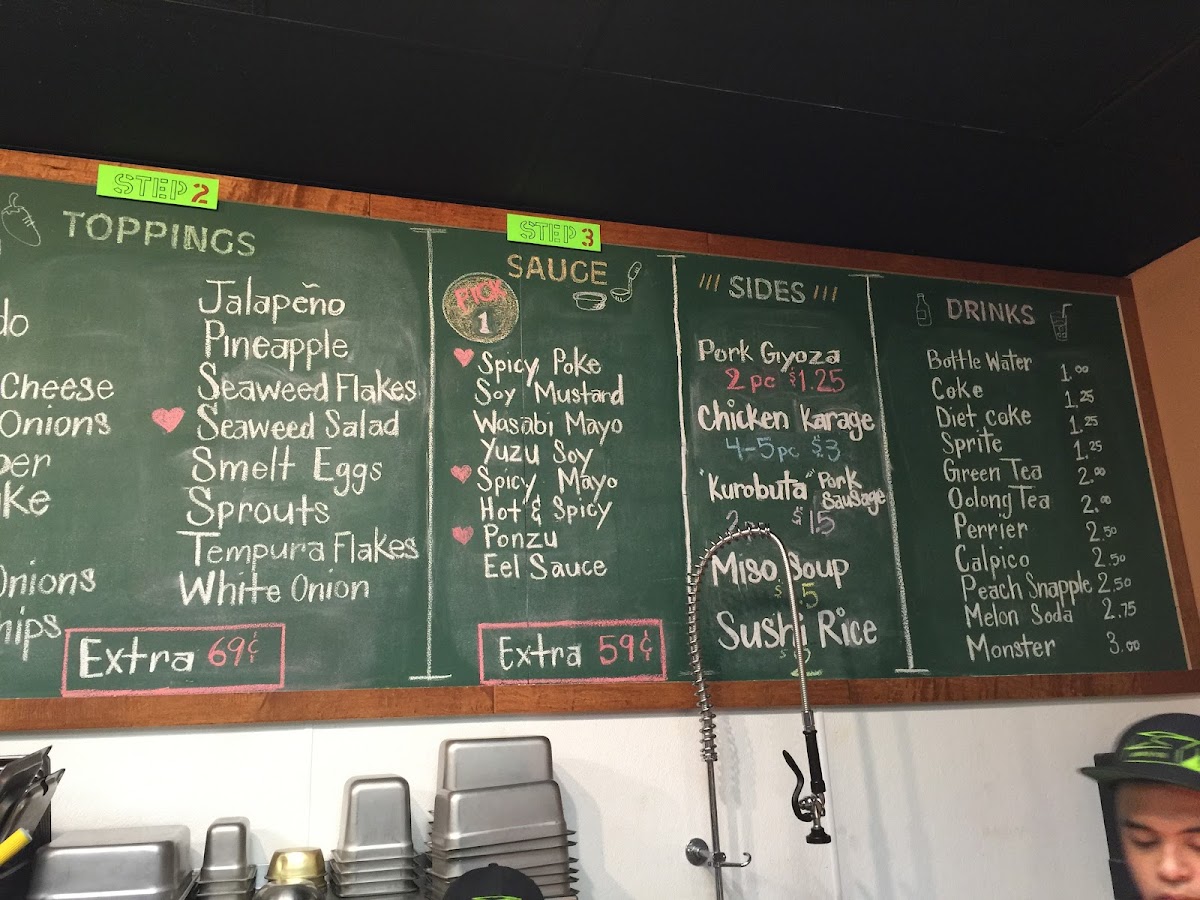 STEP 2
TOPPINGS
Cheese
Onions
Onions
Jalapeño
Pineapple
Seaweed Flakes
Seaweed Salad
Smelt Eggs
Sprouts
Tempura Flakes
White Onion
Extra 69¢
STEP 3
SAUCE
PICK
1
Spicy Poke
Soy Mustard
Wasabi Mayo
Yuzu Soy
Spicy Mayo
Hot & Spicy
Ponzu
Eel Sauce
Extra 59¢
SIDES
Pork Gyoza
2 pc $1.25
Chicken Karage
4-5pc $3
"Kurobuta" Pork Sausage
Miso Soup
Sushi Rice
DRINKS
Bottle Water 1.00
Coke 1.25
Diet coke 1.25
Sprite 1.25
Green Tea 2.00
Oolong Tea 2.00
Perrier 2.50
Calpico 2.50
Peach Snapple 2.50
Melon Soda 2.75
Monster 3.00